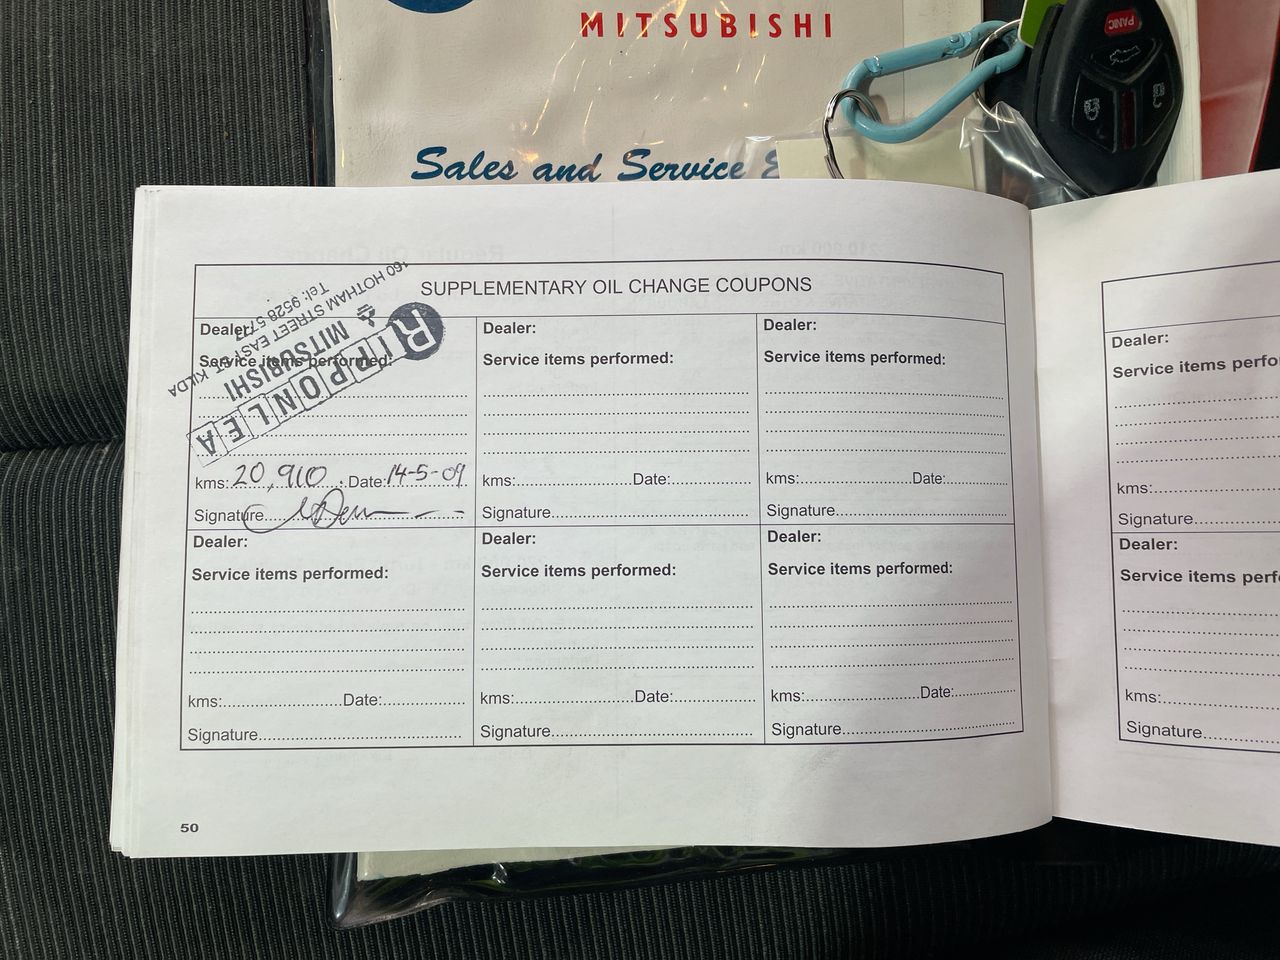 MITSUBISHI
PANIC
Sales and Service
SUPPLEMENTARY OIL CHANGE COUPONS
RIPPONLEA
MITSUBISHI
160 HOTHAM STREET EAST ST. KILDA
Tel: 9528 5777
Dealer:
Service items performed:
kms: 20,910 Date: 14-5-09
Signature
Dealer:
Service items performed:
kms: Date:
Signature
Dealer:
Service items performed:
kms: Date:
Signature
Dealer:
Service items performed:
kms: Date:
Signature
Dealer:
Service items performed:
kms: Date:
Signature
Dealer:
Service items performed:
kms: Date:
Signature
50
Dealer:
Service items perfo
kms:
Signature
Dealer:
Service items perf
kms:
Signature